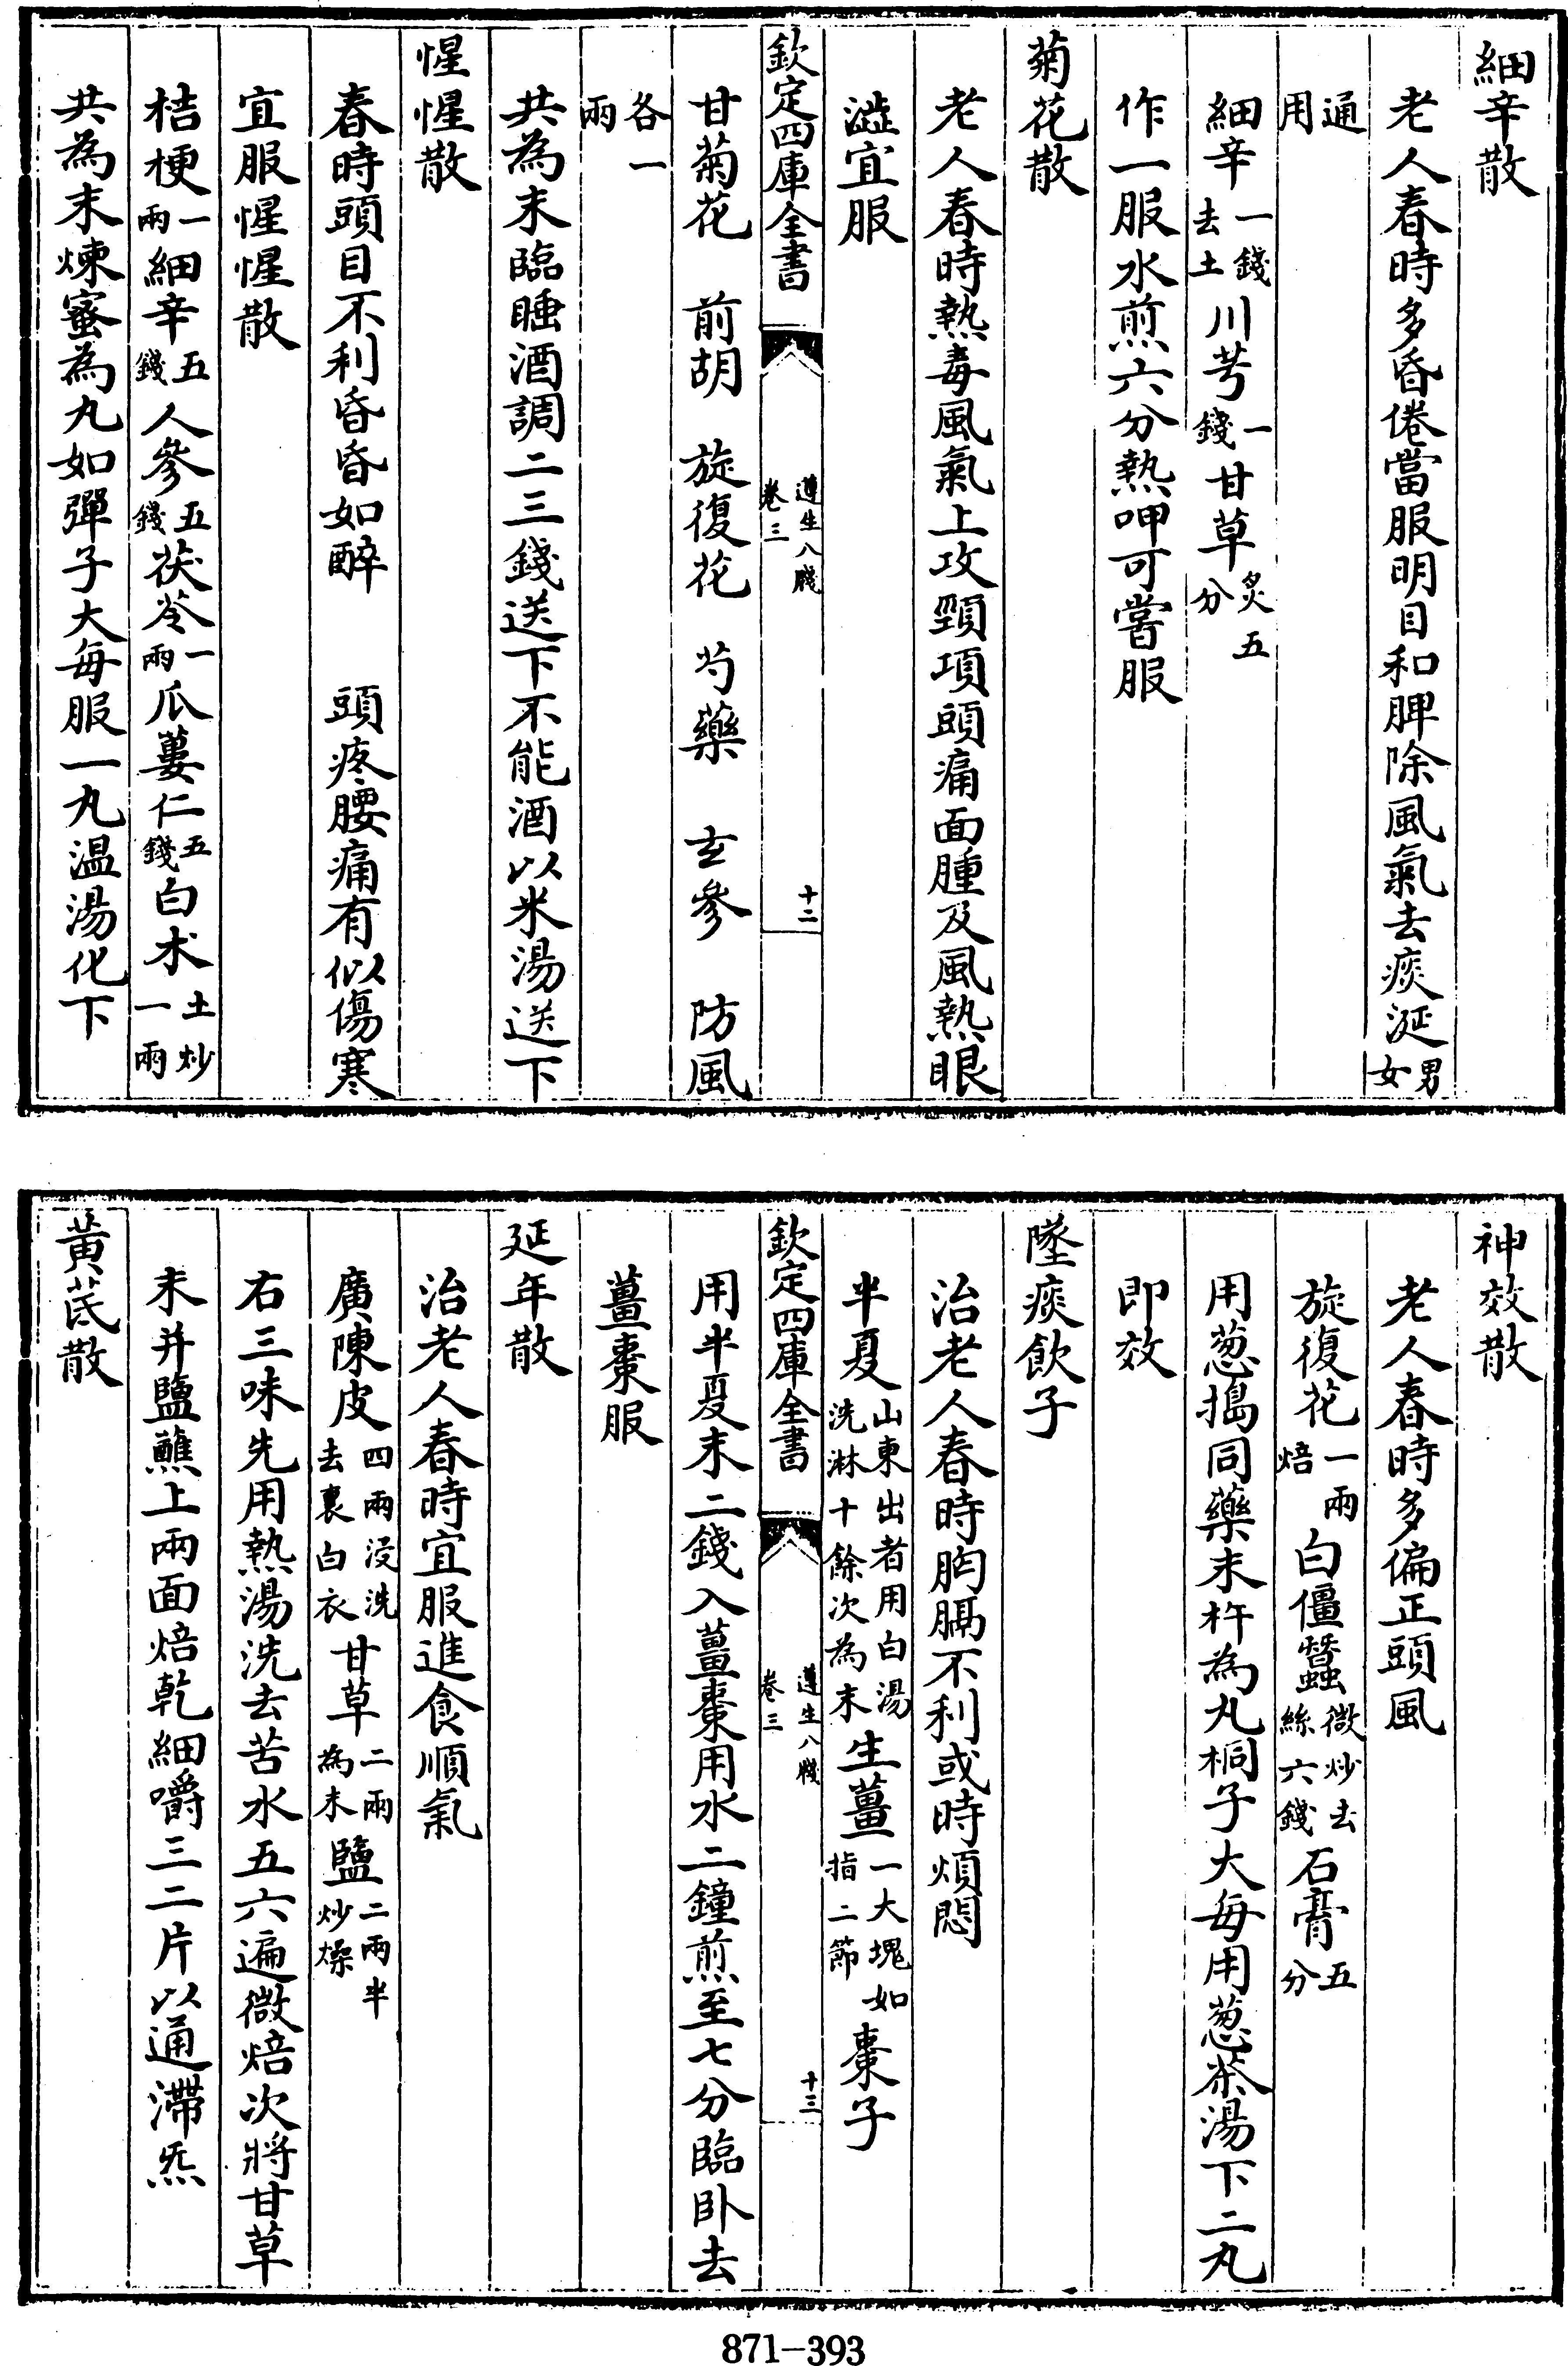 細辛散
老人春時多昏倦當服明目和脾除風氣去痰涎男女
通用
細辛一錢去土川芎一錢甘草炙五分
作一服水煎六分熱呷可嘗服
菊花散
老人春時熱毒風氣上攻頸項頭痛面腫及風熱眼
澁宜服
欽定四庫全書 遵生八牋卷三 十二
甘菊花 前胡 旋復花 芍藥 玄參 防風
各一兩
共為末臨睡酒調二三錢送下不能酒以米湯送下
惺惺散
春時頭目不利昏昏如醉 頭疼腰痛有似傷寒
宜服惺惺散
桔梗一兩細辛五錢人參五錢茯苓一兩瓜蔞仁五錢白术土炒一兩
共為末煉蜜為丸如彈子大每服一丸温湯化下
神效散
老人春時多偏正頭風
旋復花一兩焙白僵蠶微炒去絲六錢石膏五分
用葱搗同藥末杵為丸桐子大每用葱茶湯下二丸
即效
墜痰飲子
治老人春時胸膈不利或時煩悶
半夏山東出者用白湯洗淋十餘次為末生薑一大塊如指二節棗子
欽定四庫全書 遵生八牋卷三 十三
用半夏末二錢入薑棗用水二鐘煎至七分臨卧去
薑棗服
延年散
治老人春時宜服進食順氣
廣陳皮四兩浸洗去裏白衣甘草二兩為末鹽二兩半炒燥
右三味先用熱湯洗去苦水五六遍微焙次將甘草
末并鹽蘸上兩面焙乾細嚼三二片以通滯炁
黄茋散
871—393